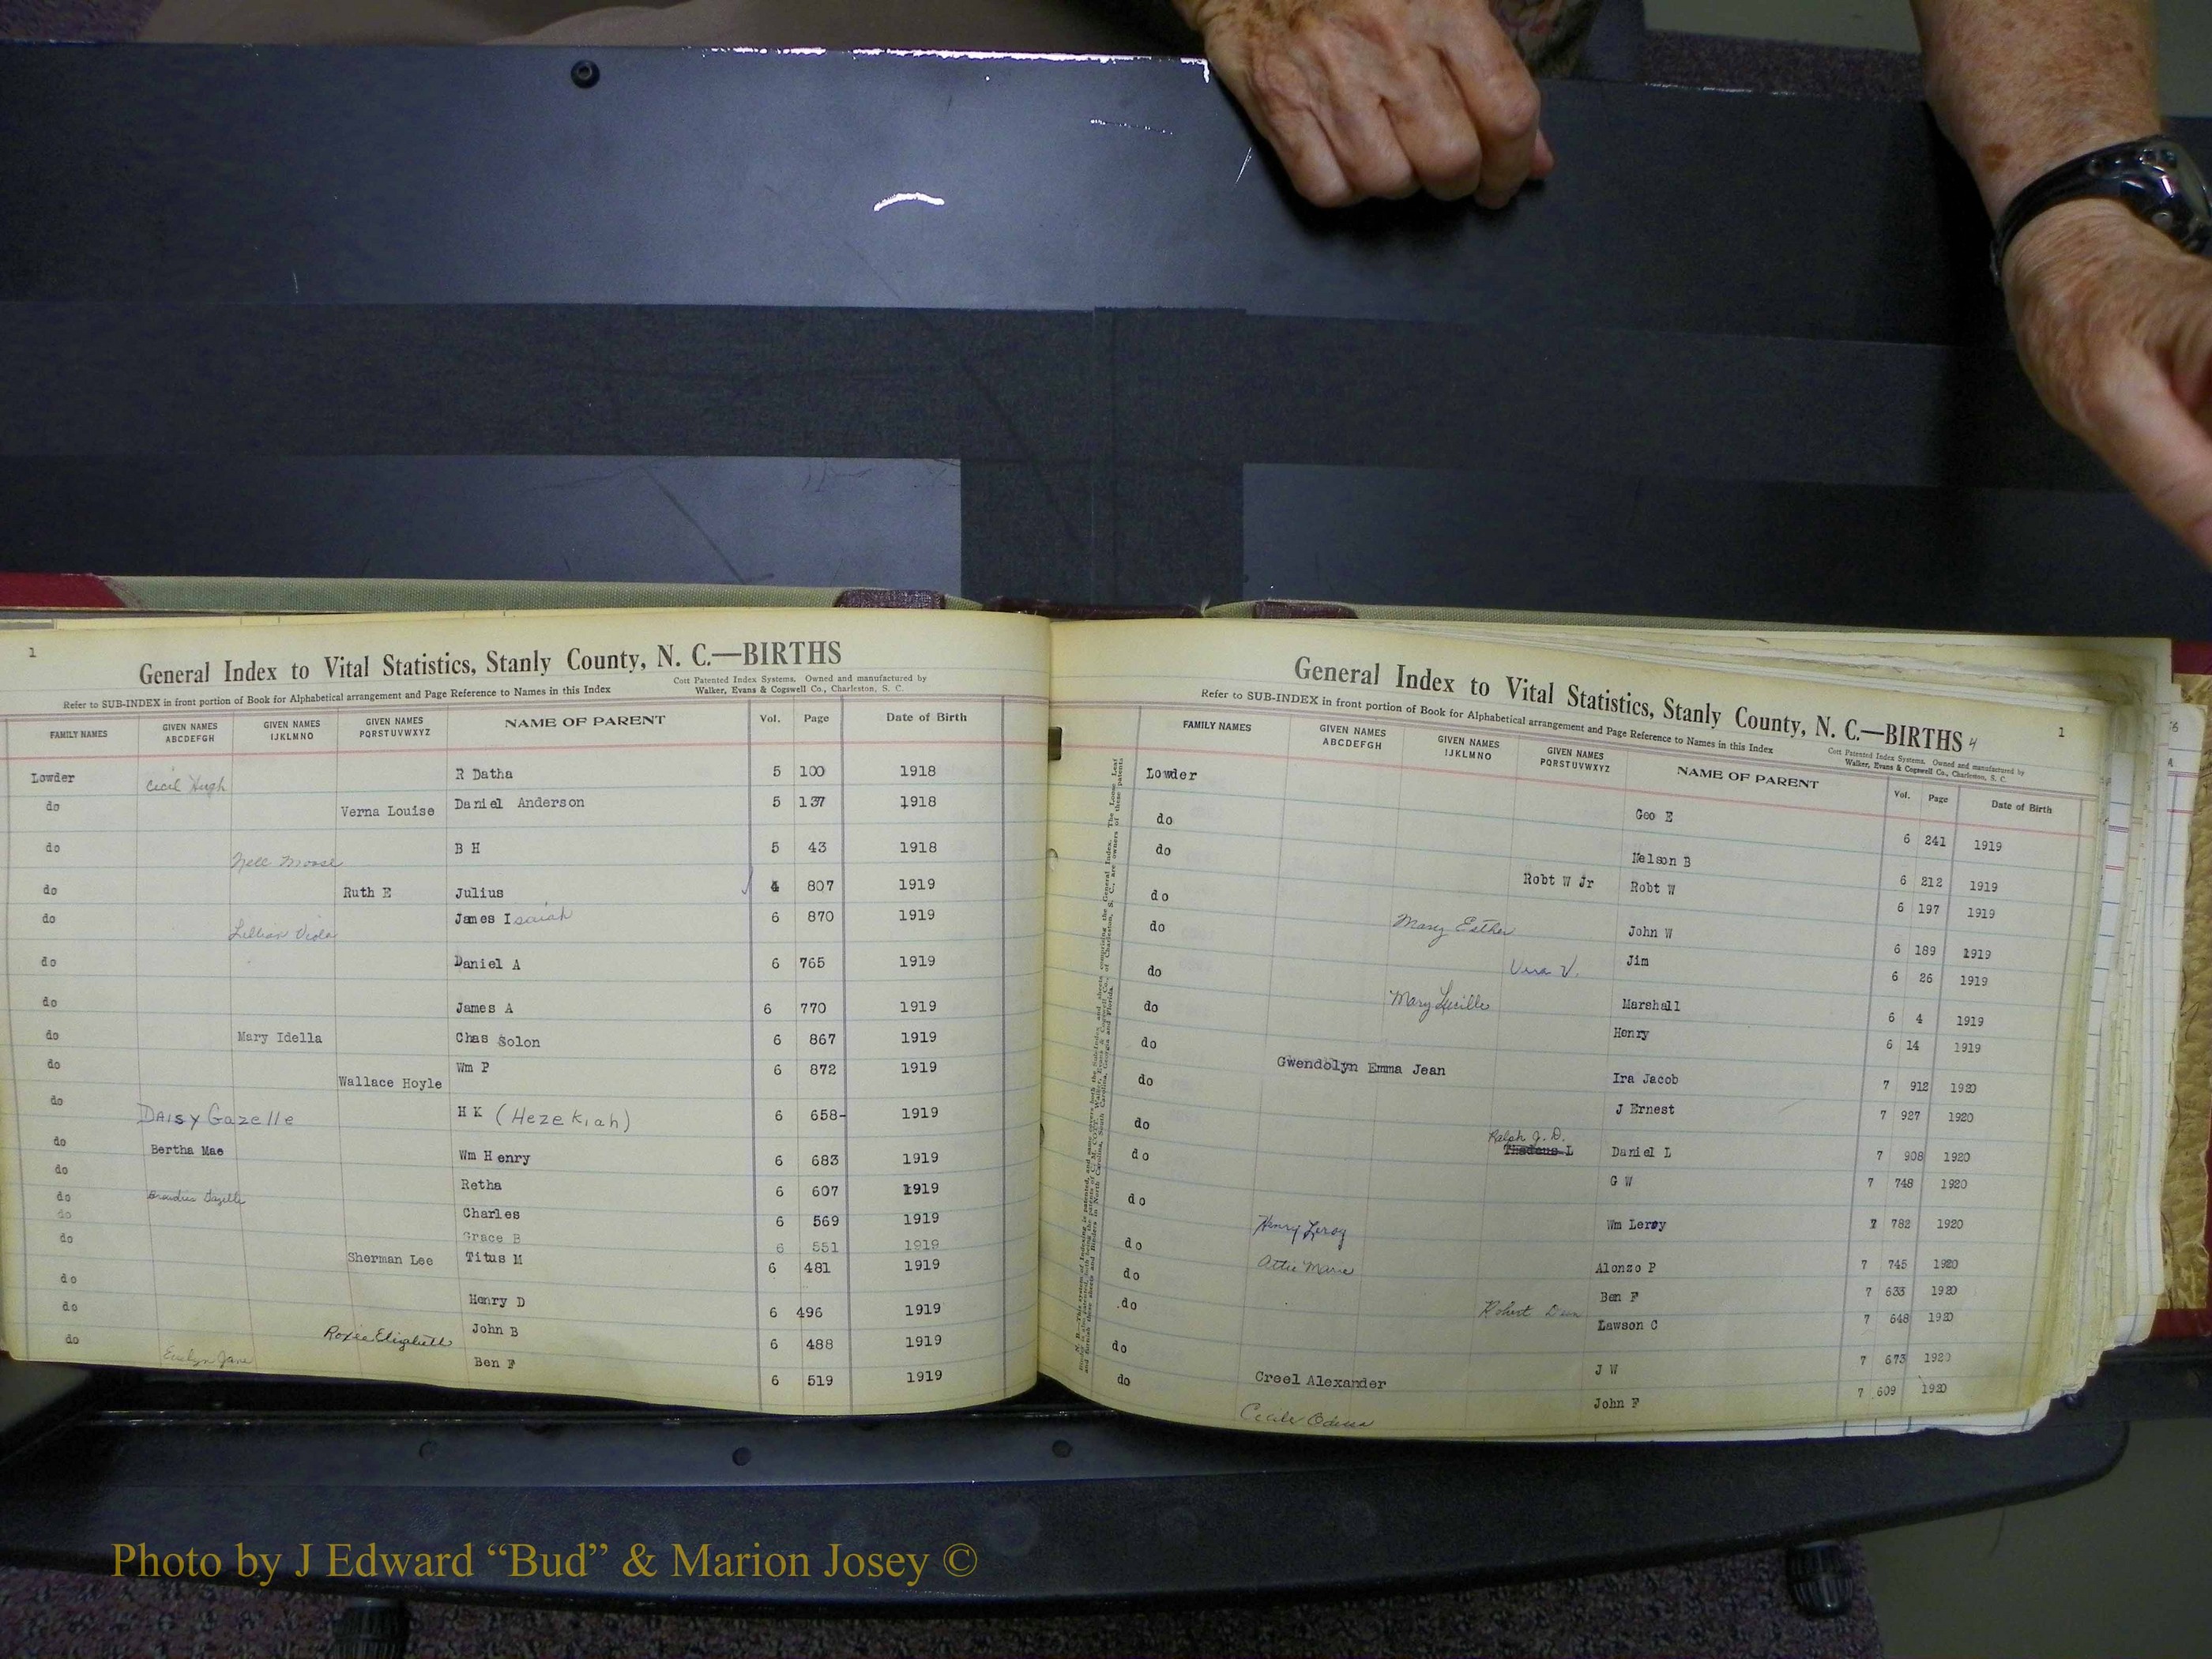 1
General Index to Vital Statistics, Stanly County, N. C.—BIRTHS
Refer to SUB-INDEX in front portion of Book for Alphabetical arrangement and Page Reference to Names in this Index
Cott Patented Index Systems. Owned and manufactured by
Walker, Evans & Cogswell Co., Charleston, S. C.
FAMILY NAMES GIVEN NAMES ABCDEFGH GIVEN NAMES IJKLMNO GIVEN NAMES PQRSTUVWXYZ NAME OF PARENT Vol. Page Date of Birth
Lowder Cecil Hugh R Datha 5 100 1918
do Verna Louise Daniel Anderson 5 137 1918
do Nell Moose B H 5 43 1918
do Ruth E Julius 4 807 1919
do Lillian Viola James Isaiah 6 870 1919
do Daniel A 6 765 1919
do James A 6 770 1919
do Mary Idella Chas Solon 6 867 1919
do Wallace Hoyle Wm P 6 872 1919
do Daisy Gazelle H K (Hezekiah) 6 658- 1919
do Bertha Mae Wm Henry 6 683 1919
do Retha 6 607 1919
do Charles 6 569 1919
do Grace B 6 551 1919
do Sherman Lee Titus M 6 481 1919
do Henry D 6 496 1919
do Roxie Elizabeth John B 6 488 1919
do Evelyn Jane Ben F 6 519 1919
General Index to Vital Statistics, Stanly County, N. C.—BIRTHS 4
1
Refer to SUB-INDEX in front portion of Book for Alphabetical arrangement and Page Reference to Names in this Index
Cott Patented Index Systems. Owned and manufactured by
Walker, Evans & Cogswell Co., Charleston, S. C.
FAMILY NAMES GIVEN NAMES ABCDEFGH GIVEN NAMES IJKLMNO GIVEN NAMES PQRSTUVWXYZ NAME OF PARENT Vol. Page Date of Birth
Lowder Geo E 6 241 1919
do Nelson B 6 212 1919
do Robt W Jr Robt W 6 197 1919
do Mary Esther John W 6 189 1919
do Vera V. Jim 6 26 1919
do Mary Lucille Marshall 6 4 1919
do Henry 6 14 1919
do Gwendolyn Emma Jean Ira Jacob 7 912 1920
do J Ernest 7 927 1920
do Ralph J. D. Thadeus L Daniel L 7 908 1920
do G W 7 748 1920
do Henry Leroy Wm Leroy 7 782 1920
do Attie Marie Alonzo P 7 745 1920
do Ben F 7 633 1920
do Robert Lawson C 7 648 1920
do Creel Alexander J W 7 673 1920
do Cecile Odessa John F 7 609 1920
Photo by J Edward “Bud” & Marion Josey ©